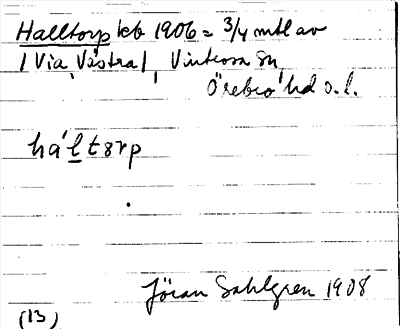 Halltorp leb 1906 = 3/4 mtl av
/Via, Västra/, Vintrosa sn,
Örebro hd o. l.
hál̲tɜrp
Jöran Sahlgren 1908
(13)